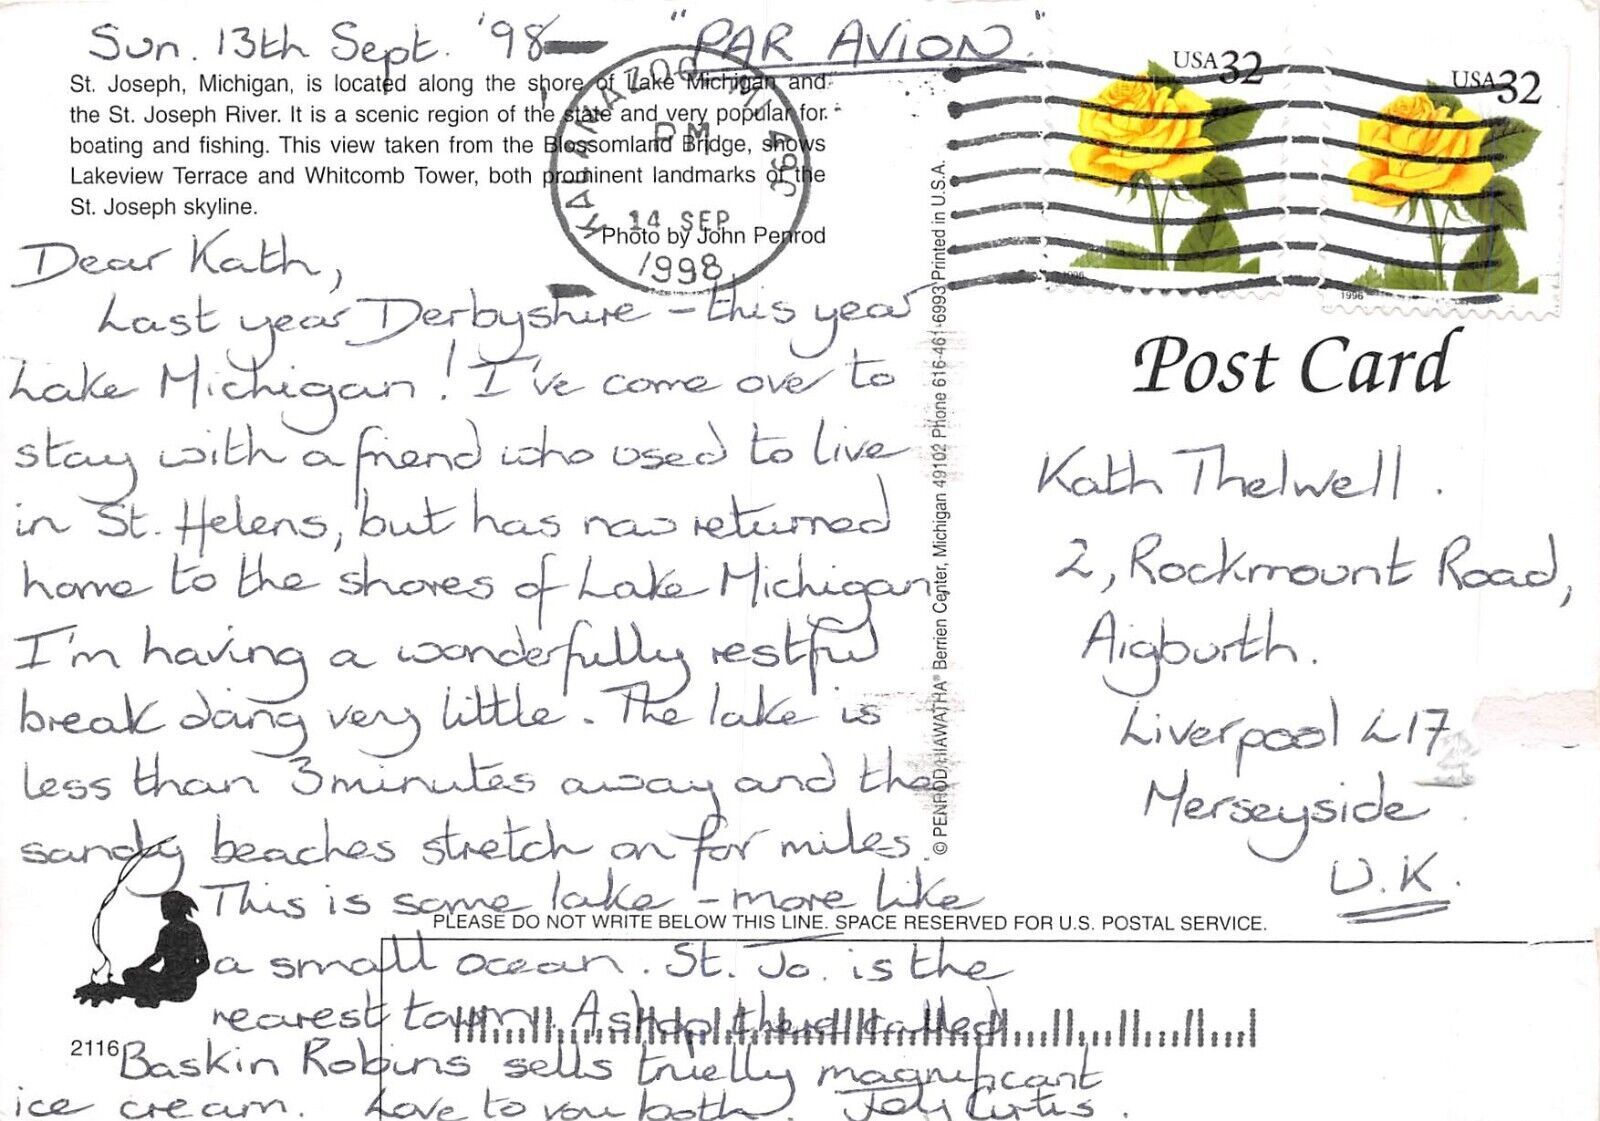 Sun. 13th Sept. '98 — "PAR AVION."
St. Joseph, Michigan, is located along the shore of Lake Michigan and
the St. Joseph River. It is a scenic region of the state and very popular for
boating and fishing. This view taken from the Blossomland Bridge, shows
Lakeview Terrace and Whitcomb Tower, both prominent landmarks of the
St. Joseph skyline.
Photo by John Penrod
KALAMAZOO MI
PM
14 SEP
1998
USA 32
1996
USA 32
1996
Dear Kath,
Last year Derbyshire - this year
Lake Michigan! I've come over to
stay with a friend who used to live
in St. Helens, but has now returned
home to the shores of Lake Michigan
I'm having a wonderfully restful
break doing very little. The lake is
less than 3 minutes away and the
sandy beaches stretch on for miles.
This is some lake - more like
a small ocean. St. Jo. is the
nearest town. A shop there called
Baskin Robins sells truelly magnificant
ice cream. Love to you both. Curtis.
2116
© PENROD/HIAWATHA® Berrien Center, Michigan 49102 Phone 616-461-6993 Printed in U.S.A.
Post Card
Kath Thelwell.
2, Rockmount Road,
Aigburth.
Liverpool L17
Merseyside.
U.K.
PLEASE DO NOT WRITE BELOW THIS LINE. SPACE RESERVED FOR U.S. POSTAL SERVICE.